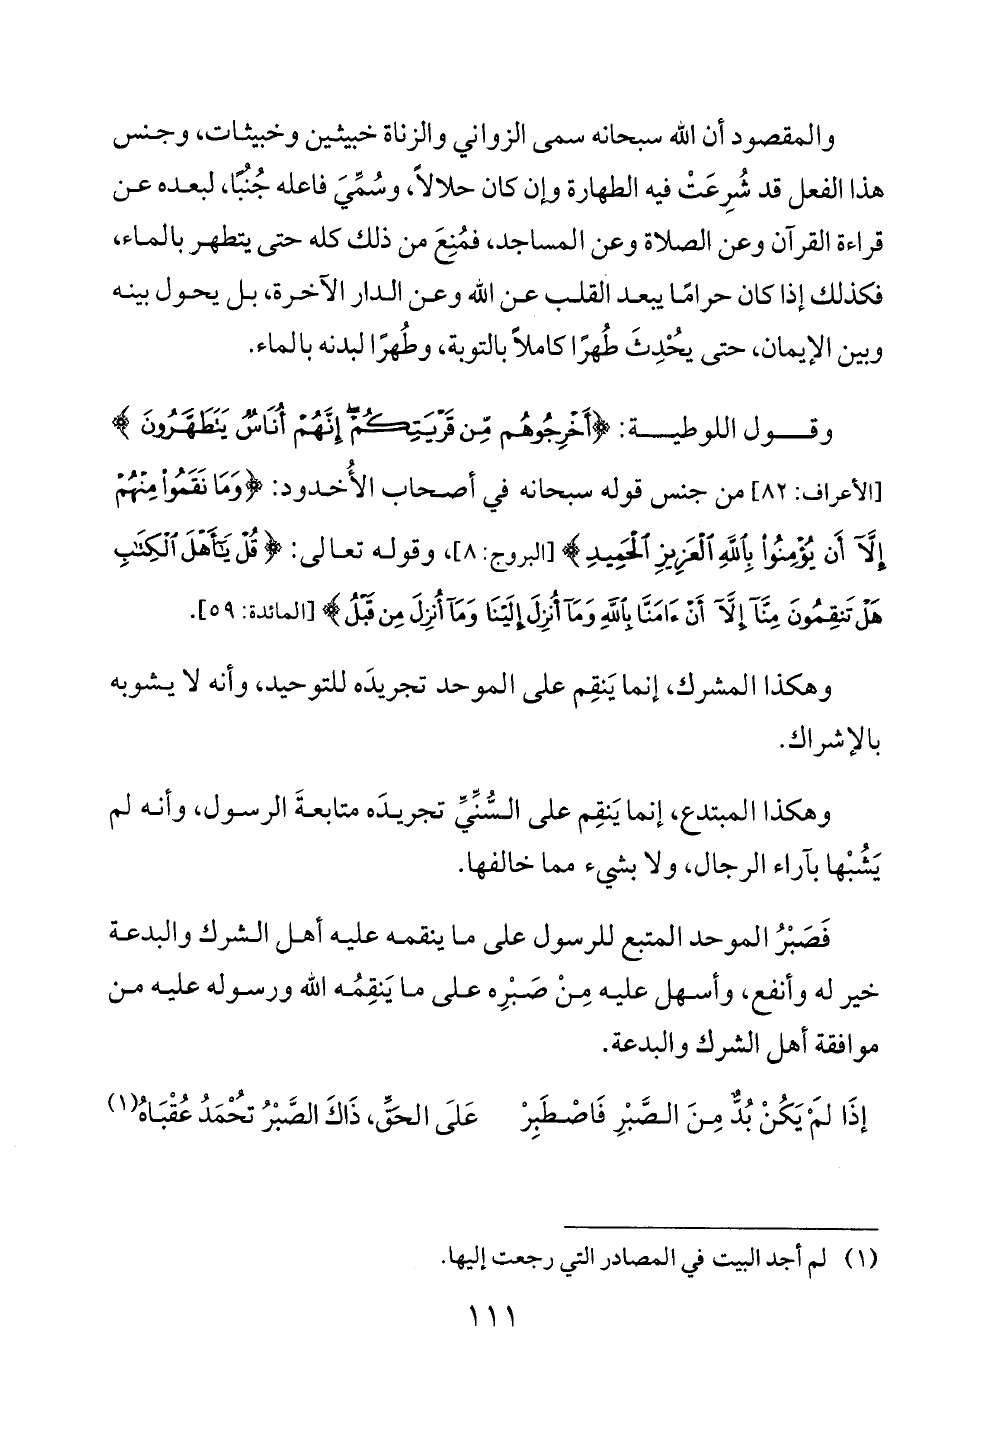 والمقصود أن الله سبحانه سمى الزواني والزناة خبيثين وخبيثات، وجنس
هذا الفعل قد شُرِعَتْ فيه الطهارة وإن كان حلالاً، وسُمِّيَ فاعله جُنُبًا، لبعده عن
قراءة القرآن وعن الصلاة وعن المساجد، فمُنِعَ من ذلك كله حتى يتطهر بالماء،
فكذلك إذا كان حرامًا يبعد القلب عن الله وعن الدار الآخرة، بل يحول بينه
وبين الإيمان، حتى يحُدِثَ طُهرًا كاملاً بالتوبة، وطُهرًا لبدنه بالماء.
وقول اللوطية: ﴿أَخْرِجُوهُم مِّن قَرْيَتِكُمْ ۖ إِنَّهُمْ أُنَاسٌ يَتَطَهَّرُونَ﴾
[الأعراف: ٨٢] من جنس قوله سبحانه في أصحاب الأُخدود: ﴿وَمَا نَقَمُوا۟ مِنْهُمْ
إِلَّآ أَن يُؤْمِنُوا۟ بِٱللَّهِ ٱلْعَزِيزِ ٱلْحَمِيدِ﴾ [البروج: ٨]، وقوله تعالى: ﴿قُلْ يَـٰٓأَهْلَ ٱلْكِتَـٰبِ
هَلْ تَنقِمُونَ مِنَّآ إِلَّآ أَنْ ءَامَنَّا بِٱللَّهِ وَمَآ أُنزِلَ إِلَيْنَا وَمَآ أُنزِلَ مِن قَبْلُ﴾ [المائدة: ٥٩].
وهكذا المشرك، إنما يَنقِم على الموحد تجريدَه للتوحيد، وأنه لا يشوبه
بالإشراك.
وهكذا المبتدع، إنما يَنقِم على السُّنِّيِّ تجريدَه متابعةَ الرسول، وأنه لم
يَشُبْها بآراء الرجال، ولا بشيء مما خالفها.
فَصَبْرُ الموحد المتبع للرسول على ما ينقمه عليه أهل الشرك والبدعة
خير له وأنفع، وأسهل عليه مِنْ صَبْرِه على ما يَنقِمُه الله ورسوله عليه من
موافقة أهل الشرك والبدعة.
إذَا لَمْ يَكُنْ بُدٌّ مِنَ الصَّبْرِ فَاصْطَبِرْ عَلَى الحَقِّ، ذَاكَ الصَّبْرُ تحُمَدُ عُقْبَاهُ(١)
(١) لم أجد البيت في المصادر التي رجعت إليها.
١١١